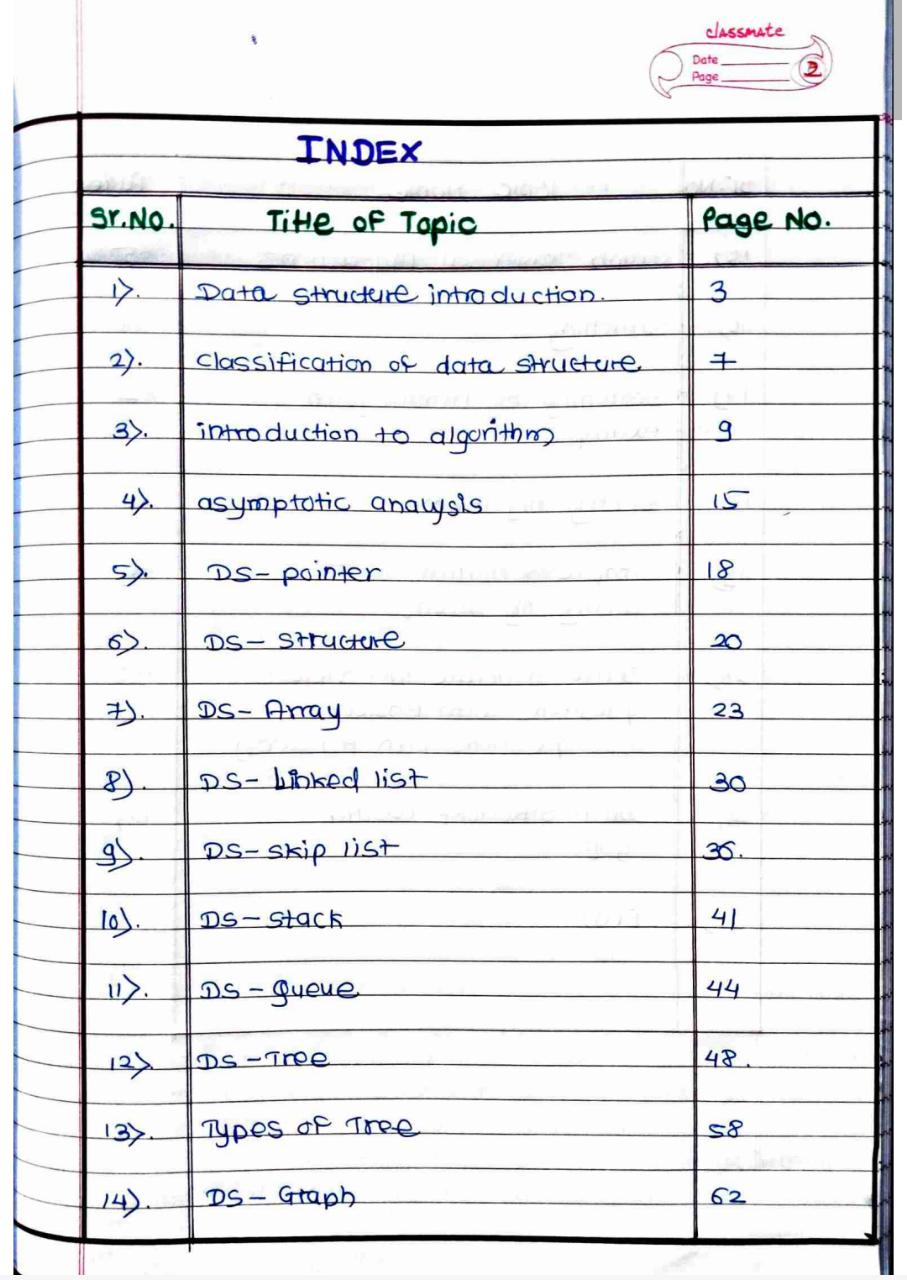 classmate
Date
Page 2
INDEX
Sr.No. Title of Topic Page No.
1). Data structure introduction. 3
2). classification of data structure 7
3). introduction to algorithm 9
4). asymptotic analysis 15
5). DS- pointer 18
6). DS- structure 20
7). DS- Array 23
8). DS- Linked list 30
9). DS- skip list 36.
10). DS- stack 41
11). DS- queue 44
12). DS-Tree 48.
13). Types of Tree 58
14). DS- Graph 62